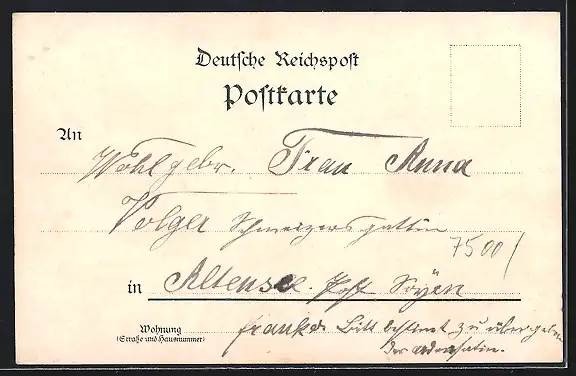 Deutsche Reichspost
Postkarte
An
Wohlgebr. Frau Anna
Volger Schweizers gattin
7500/
in Altensee. Post Soÿen
Wohnung
(Straße und Hausnummer)
franko Bitt bestimt zu übergeben
der